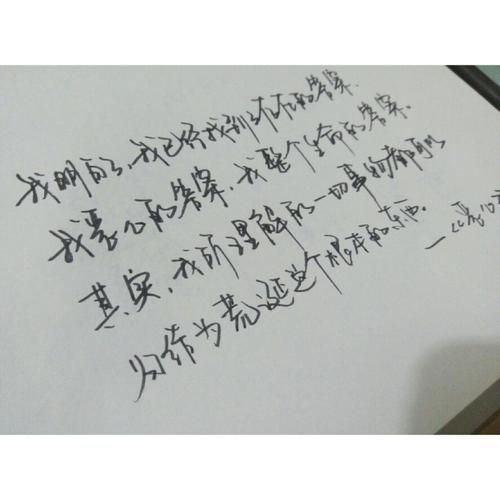 我明白了,我已经找到了存在的答案,
我恶心的答案,我整个生命的答案。
其实,我所理解的一切事物都可以
归结为荒诞这个根本的东西。
—《恶心》